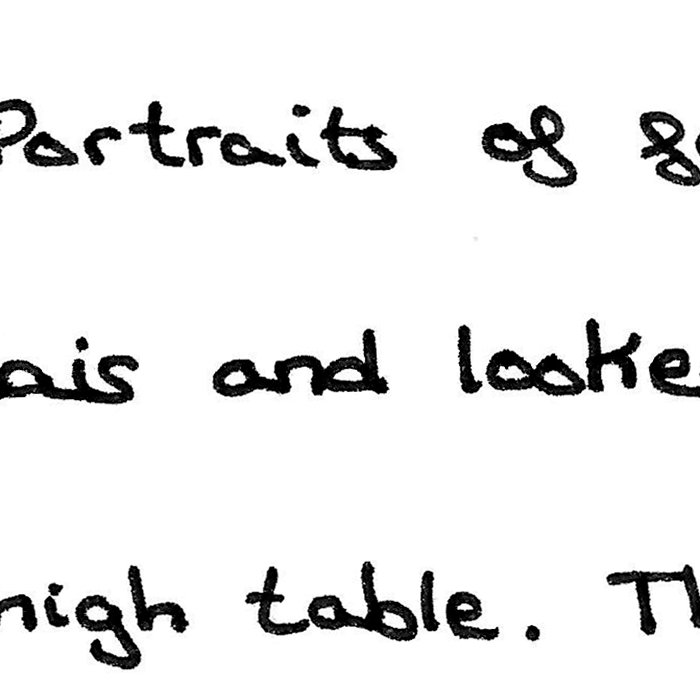 Portraits of
ais and looke
high table. Th